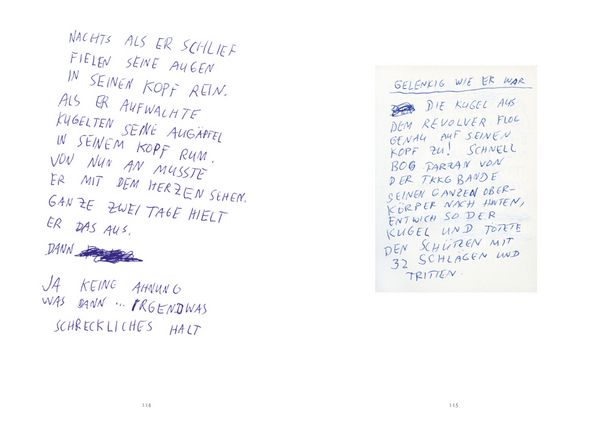 NACHTS ALS ER SCHLIEF
FIELEN SEINE AUGEN
IN SEINEN KOPF REIN.
ALS ER AUFWACHTE
KUGELTEN SEINE AUGÄPFEL
IN SEINEM KOPF RUM.
VON NUN AN MUSSTE
ER MIT DEM HERZEN SEHEN.
GANZE ZWEI TAGE HIELT
ER DAS AUS.
DANN
JA KEINE AHNUNG
WAS DANN ... IRGENDWAS
SCHRECKLICHES HALT
114
GELENKIG WIE ER WAR
DIE KUGEL AUS
DEM REVOLVER FLOG
GENAU AUF SEINEN
KOPF ZU! SCHNELL
BOG TARZAN VON
DER TKKG BANDE
SEINEN GANZEN OBER-
KÖRPER NACH HINTEN,
ENTWICH SO DER
KUGEL UND TÖTETE
DEN SCHÜTZEN MIT
32 SCHLÄGEN UND
TRITTEN.
115